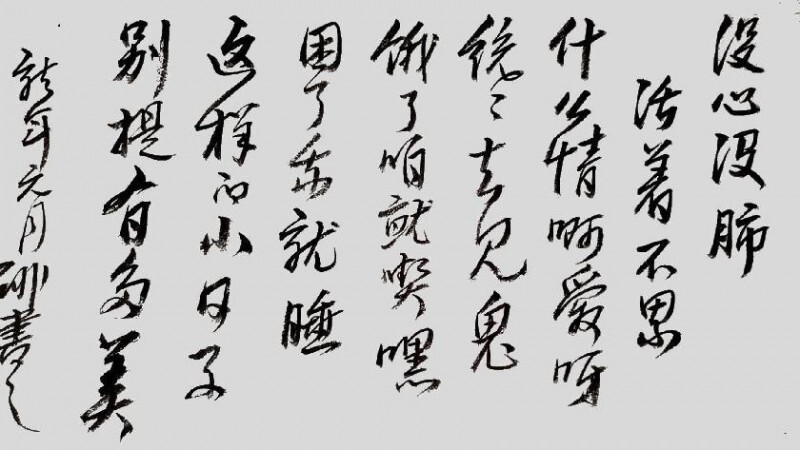 没心没肺
活着不累
什么情啊爱呀
统统去见鬼
饿了咱就喫嘿
困了就睡
这样的小日子
别提有多美
年元月書之